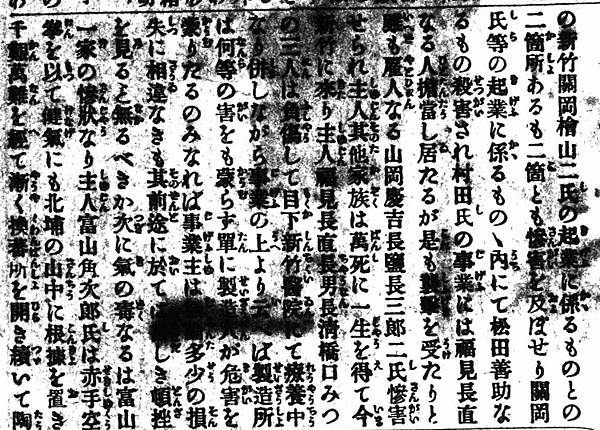 の新竹關岡檜山二氏の起業に係るものとの
二箇所あるも二箇とも慘害を及ぼせり關岡
氏等の起業に係るものゝ內にて松田善助な
るもの殺害され村田氏の事業には福見長直
なる人擔當し居たるが是も襲擊を受たりと
雖も雇人なる山岡慶吉長鹽長三郎二氏慘害
せられ主人其他家族は萬死に一生を得て今
新竹に來り主人福見長直長男長清橋口みつ
の三人は負傷して目下新竹醫院にて療養中
なり併しながら事業の上より云へば製造所
は何等の害をも蒙らず單に製造人が危害を
蒙りたるのみなれば事業主は多少の損
失に相違なきも其前途に於てはしき頓挫
を見ると無るべきか次に氣の毒なるは富山
一家の慘狀なり主人富山角次郎氏は赤手空
拳を以て健氣にも北埔の山中に根據を置き
千艱萬難を經て漸く換蕃所を開き續いて陶